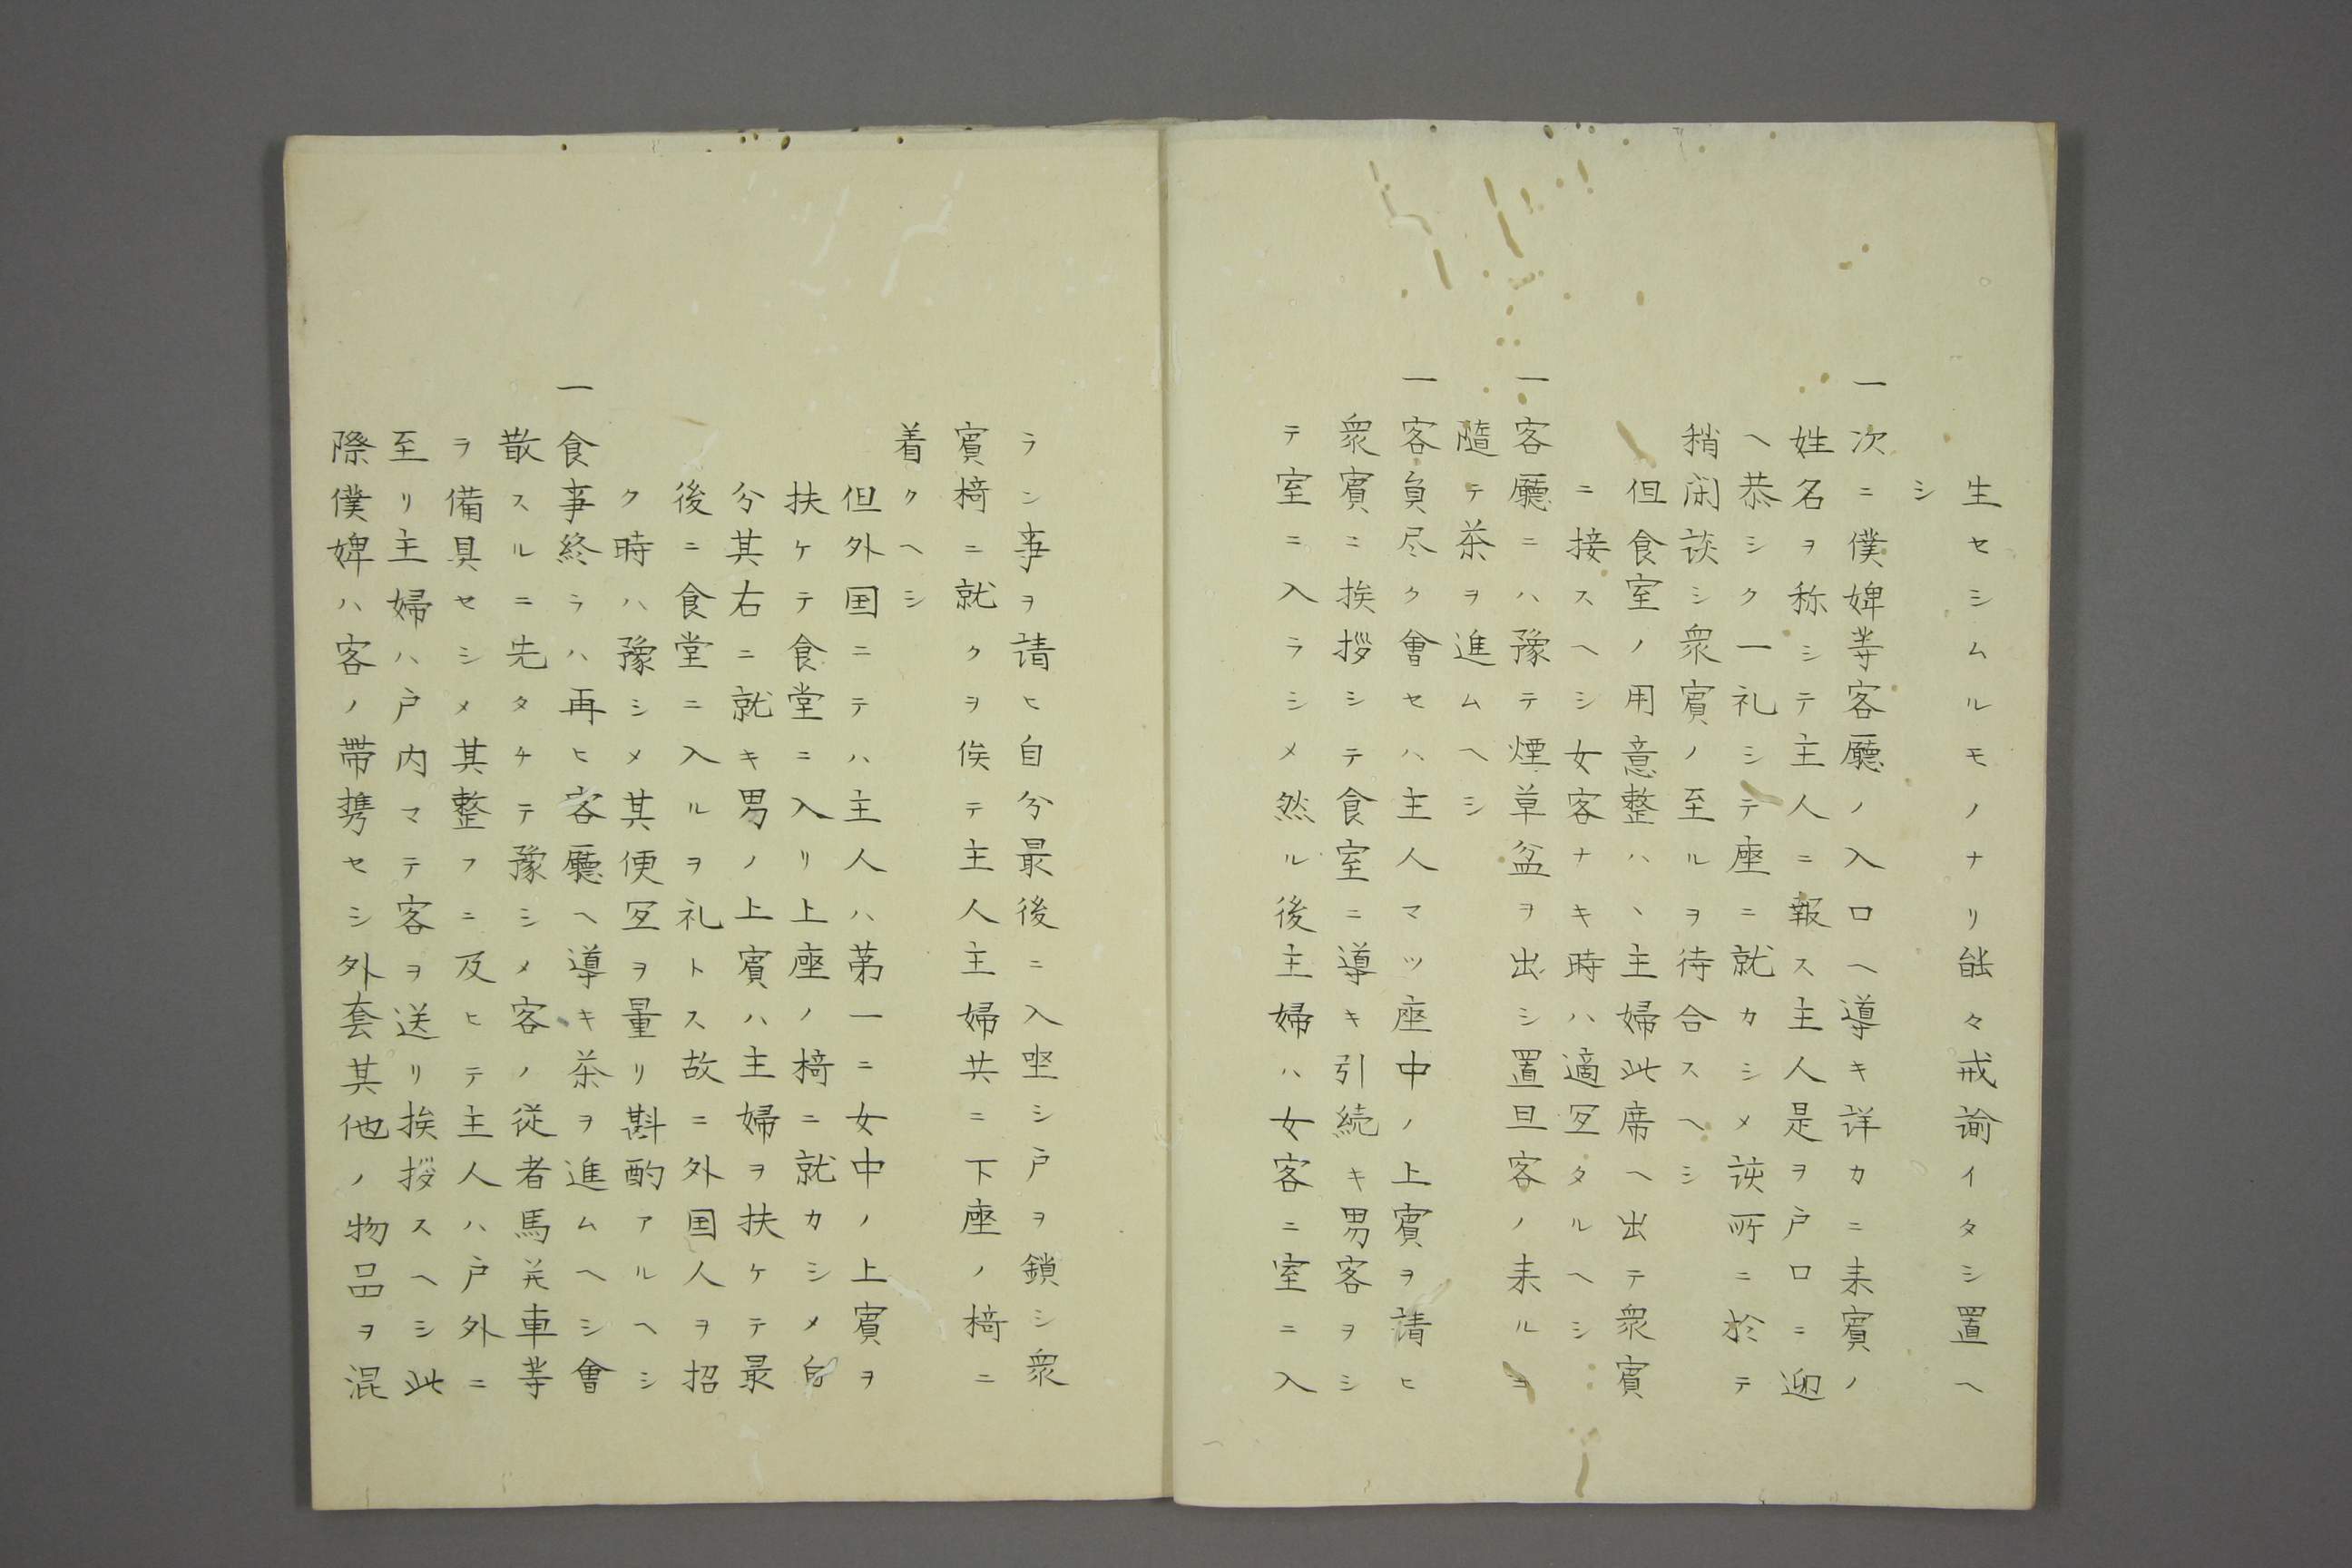 生セシムルモノナリ能々戒諭イタシ置ヘ
シ
一次ニ僕婢等客廳ノ入口ヘ導キ詳カニ来賓ノ
姓名ヲ称シテ主人ニ報ス主人是ヲ戸口ニ迎
ヘ恭シク一礼シテ座ニ就カシメ該所ニ於テ
稍閑談シ衆賓ノ至ルヲ待合スヘシ
但食室ノ用意整ハヽ主婦此席ヘ出テ衆賓
ニ接スヘシ女客ナキ時ハ適宜タルヘシ
一客廳ニハ豫テ煙草盆ヲ出シ置旦客ノ来ルヲ
隨テ茶ヲ進ムヘシ
一客負尽ク會セハ主人マツ座中ノ上賓ヲ請ヒ
衆賓ニ挨拶シテ食室ニ導キ引続キ男客ヲシ
テ室ニ入ラシメ然ル後主婦ハ女客ニ室ニ入
ラン事ヲ請ヒ自分最後ニ入坐シ戸ヲ鎖シ衆
賓椅ニ就クヲ俟テ主人主婦共ニ下座ノ椅ニ
着クヘシ
但外国ニテハ主人ハ第一ニ女中ノ上賓ヲ
扶ケテ食堂ニ入リ上座ノ椅ニ就カシメ自
分其右ニ就キ男ノ上賓ハ主婦ヲ扶ケテ最
後ニ食堂ニ入ルヲ礼トス故ニ外国人ヲ招
ク時ハ豫シメ其便宜ヲ量リ斟酌アルヘシ
一食事終ラハ再ヒ客廳ヘ導キ茶ヲ進ムヘシ會
散スルニ先タチテ豫シメ客ノ従者馬并車等
ヲ備具セシメ其整フニ及ヒテ主人ハ戸外ニ
至リ主婦ハ戸内マテ客ヲ送リ挨拶スヘシ此
際僕婢ハ客ノ帯携セシ外套其他ノ物品ヲ混